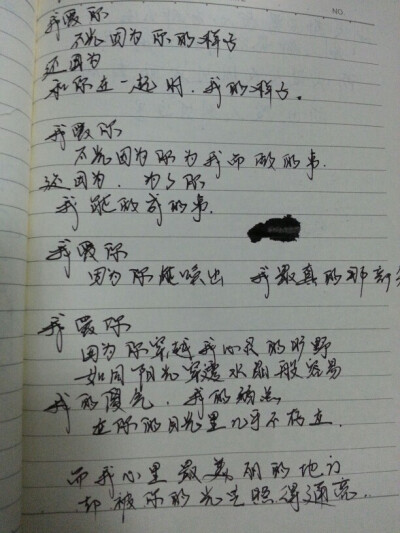 NO.
我爱你
不光因为你的样子
还因为
和你在一起时.我的样子。
我爱你
不光因为你为我而做的事.
还因为.为了你
我能做的事.
我爱你
因为你能唤出 我最真的那部分
我爱你
因为你穿越我心灵的旷野
如同阳光穿透水晶般容易
我的傻气.我的弱点
在你的目光里几乎不存在.
而我心里最美丽的地方
却被你的光芒照得通亮.